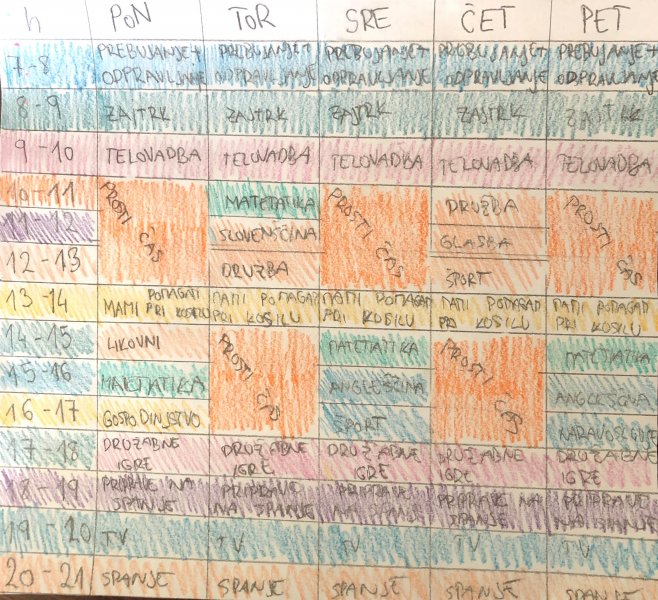 h PON TOR SRE ČET PET
7-8 PREBUJANJE + PREBUJANJE + PREBUJANJE + PREBUJANJE + PREBUJANJE +
ODPRAVLJANJE ODPRAVLJANJE ODPRAVLJANJE ODPRAVLJANJE ODPRAVLJANJE
8-9 ZAJTRK ZAJTRK ZAJTRK ZAJTRK ZAJTRK
9-10 TELOVADBA TELOVADBA TELOVADBA TELOVADBA TELOVADBA
10-11 PROSTI ČAS MATETATIKA PROSTI ČAS DRUŽBA PROSTI ČAS
11-12 SLOVENŠČINA GLASBA
12-13 DRUŽBA ŠPORT
13-14 MAMI POMAGATI MAMI POMAGATI MAMI POMAGATI MAMI POMAGATI MAMI POMAGATI
PRI KOSILU PRI KOSILU PRI KOSILU PRI KOSILU PRI KOSILU
14-15 LIKOVNI PROSTI ČAS MATETATIKA PROSTI ČAS MATETATIKA
15-16 MATEMATIKA ANGLEŠČINA ANGLEŠČINA
16-17 GOSPODINJSTVO ŠPORT NARAVOSLOVJE
17-18 DRUŽABNE DRUŽABNE DRUŽABNE DRUŽABNE DRUŽABNE
IGRE IGRE IGRE IGRE IGRE
18-19 PRIPRAVE NA PRIPRAVE PRIPRAVE PRIPRAVE NA PRIPRAVE
SPANJE NA SPANJE NA SPANJE SPANJE NA SPANJE
19-20 TV TV TV TV TV
20-21 SPANJE SPANJE SPANJE SPANJE SPANJE